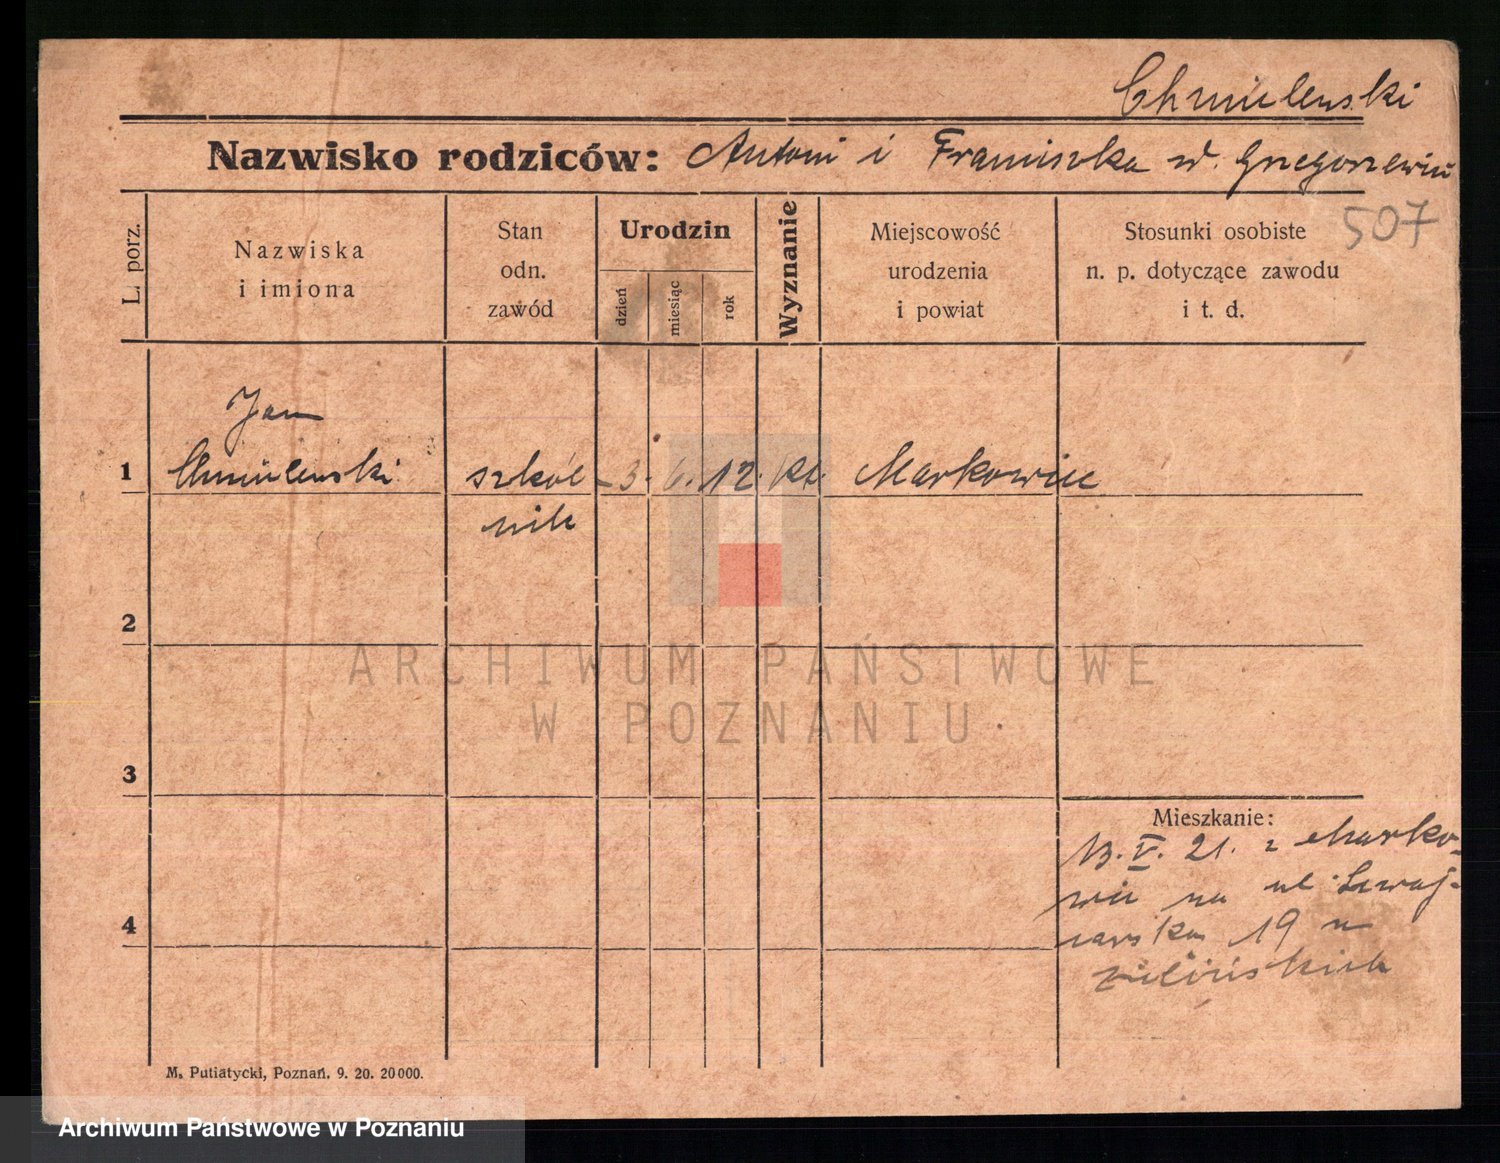 Chmielewski
Nazwisko rodziców: Antoni i Franciszka w Grzegorzewiu
507
L. porz.
Nazwiska
i imiona
Stan
odn.
zawód
Urodzin
dzień
miesiąc
rok
Wyznanie
Miejscowość
urodzenia
i powiat
Stosunki osobiste
n. p. dotyczące zawodu
i t. d.
Jan
1 Chmielewski szkól 3. 6. 12. kt. Markowice
nik
2
ARCHIWUM PAŃSTWOWE
W POZNANIU
3
Mieszkanie:
13. V. 21. z Marko-
wic na ul. Szwaj-
carska 19 u
Zielińskich
4
M. Putiatycki, Poznań. 9. 20. 20000.
Archiwum Państwowe w Poznaniu